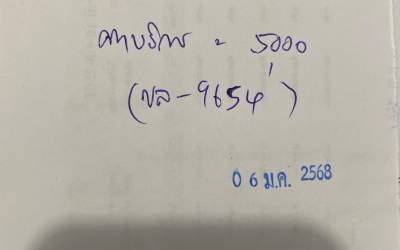 ค่าบริการ = 5000
(ขล-9654)
0 6 ม.ค. 2568